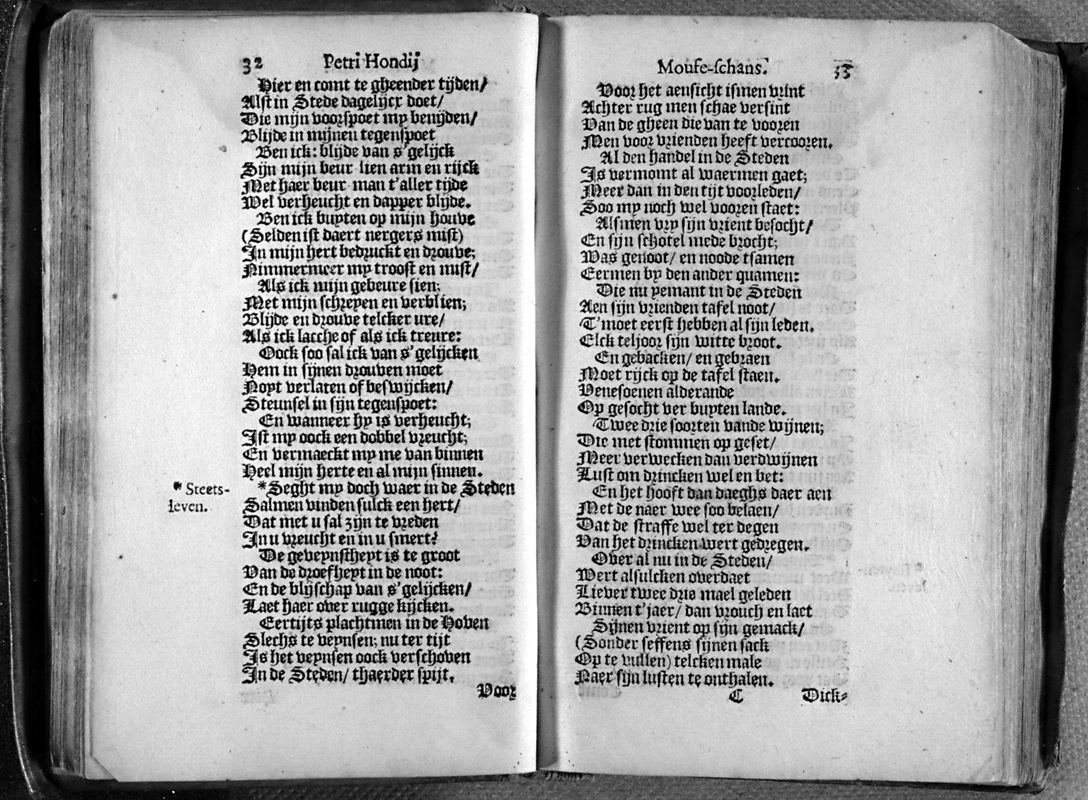 32 Petri Hondij
Hier en comt te gheender tijden/
Alst in Stede dagelijcx doet/
Die mijn voorspoet my benijden/
Blijde in mijnen tegenspoet
Ben ick: blijde van s'gelijck
Sijn mijn beur-lien arm en rijck
Met haer beur-man t'aller tijde
Wel verheucht en dapper blijde.
Ben ick buyten op mijn houve
(Selden ist daert nergers mist)
In mijn hert bedruckt en drouve;
Nimmermeer my troost en mist/
Als ick mijn gebeure sien;
Met mijn schreyen en verblien;
Blijde en drouve telcker ure/
Als ick lacche of als ick treure:
Oock soo sal ick van s'gelijcken
Hem in sijnen drouven moet
Noyt verlaten of beswijcken/
Steunsel in sijn tegenspoet:
En wanneer hy is verheucht;
Ist my oock een dobbel vreucht;
En vermaeckt my me van binnen
Heel mijn herte en al mijn sinnen.
* Steets-
leven.
*Seght my doch waer in de Steden
Salmen vinden sulck een hert/
Dat met u sal zijn te vreden
In u vreucht en in u smert?
De geveynstheyt is te groot
Van de droefheyt in de noot:
En de blijschap van s'gelijcken/
Laet haer over rugge kijcken.
Eertijts plachtmen in de Hoven
Slechs te veynsen; nu ter tijt
Is het veynsen oock verschoven
In de Steden/ thaerder spijt.
Voor
Mouse-schans. 33
Voor het aensicht ismen vrint
Achter rug men schae versint
Van de gheen die van te vooren
Men voor vrienden heeft vercooren.
Al den handel in de Steden
Is vermomt al waermen gaet;
Meer dan in den tijt voorleden/
Soo my noch wel vooren staet:
Alsmen vry sijn vrient besocht/
En sijn schotel mede brocht;
Was genoot/ en noode tsamen
Eermen by den ander quamen:
Die nu yemant in de Steden
Aen sijn vrienden tafel noot/
T'moet eerst hebben al sijn leden.
Elck teljoor sijn witte broot.
En gebacken/ en gebraen
Moet rijck op de tafel staen.
Venesoenen alderande
Op gesocht ver buyten lande.
Twee drie soorten vande wijnen;
Die met stommen op geset/
Meer verwecken dan verdwijnen
Lust om drincken wel en bet:
En het hooft dan daeghs daer aen
Met de naer wee soo belaen/
Dat de straffe wel ter degen
Van het drincken wert gedregen.
Over al nu in de Steden/
Wert alsulcken overdaet
Liever twee drie mael geleden
Binnen t'jaer/ dan vrouch en laet
Sijnen vrient op sijn gemack/
(Sonder seffens sijnen sack
Op te vullen) telcken male
Naer sijn lusten te onthalen.
C Dick-